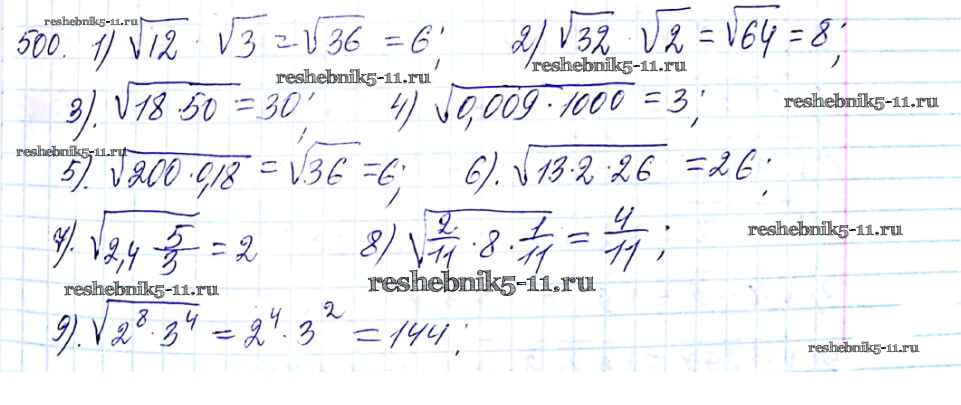 reshebnik5-11.ru
500. 1) √12 · √3 = √36 = 6; 2) √32 · √2 = √64 = 8;
reshebnik5-11.ru reshebnik5-11.ru
3). √18·50 = 30; 4) √0,009·1000 = 3; reshebnik5-11.ru
reshebnik5-11.ru
5). √200·0,18 = √36 = 6; 6). √13·2·26 = 26;
7). √2,4 5/3 = 2 8) √2/11 · 8 · 1/11 = 4/11; reshebnik5-11.ru
reshebnik5-11.ru reshebnik5-11.ru
9). √2⁸·3⁴ = 2⁴·3² = 144;
reshebnik5-11.ru